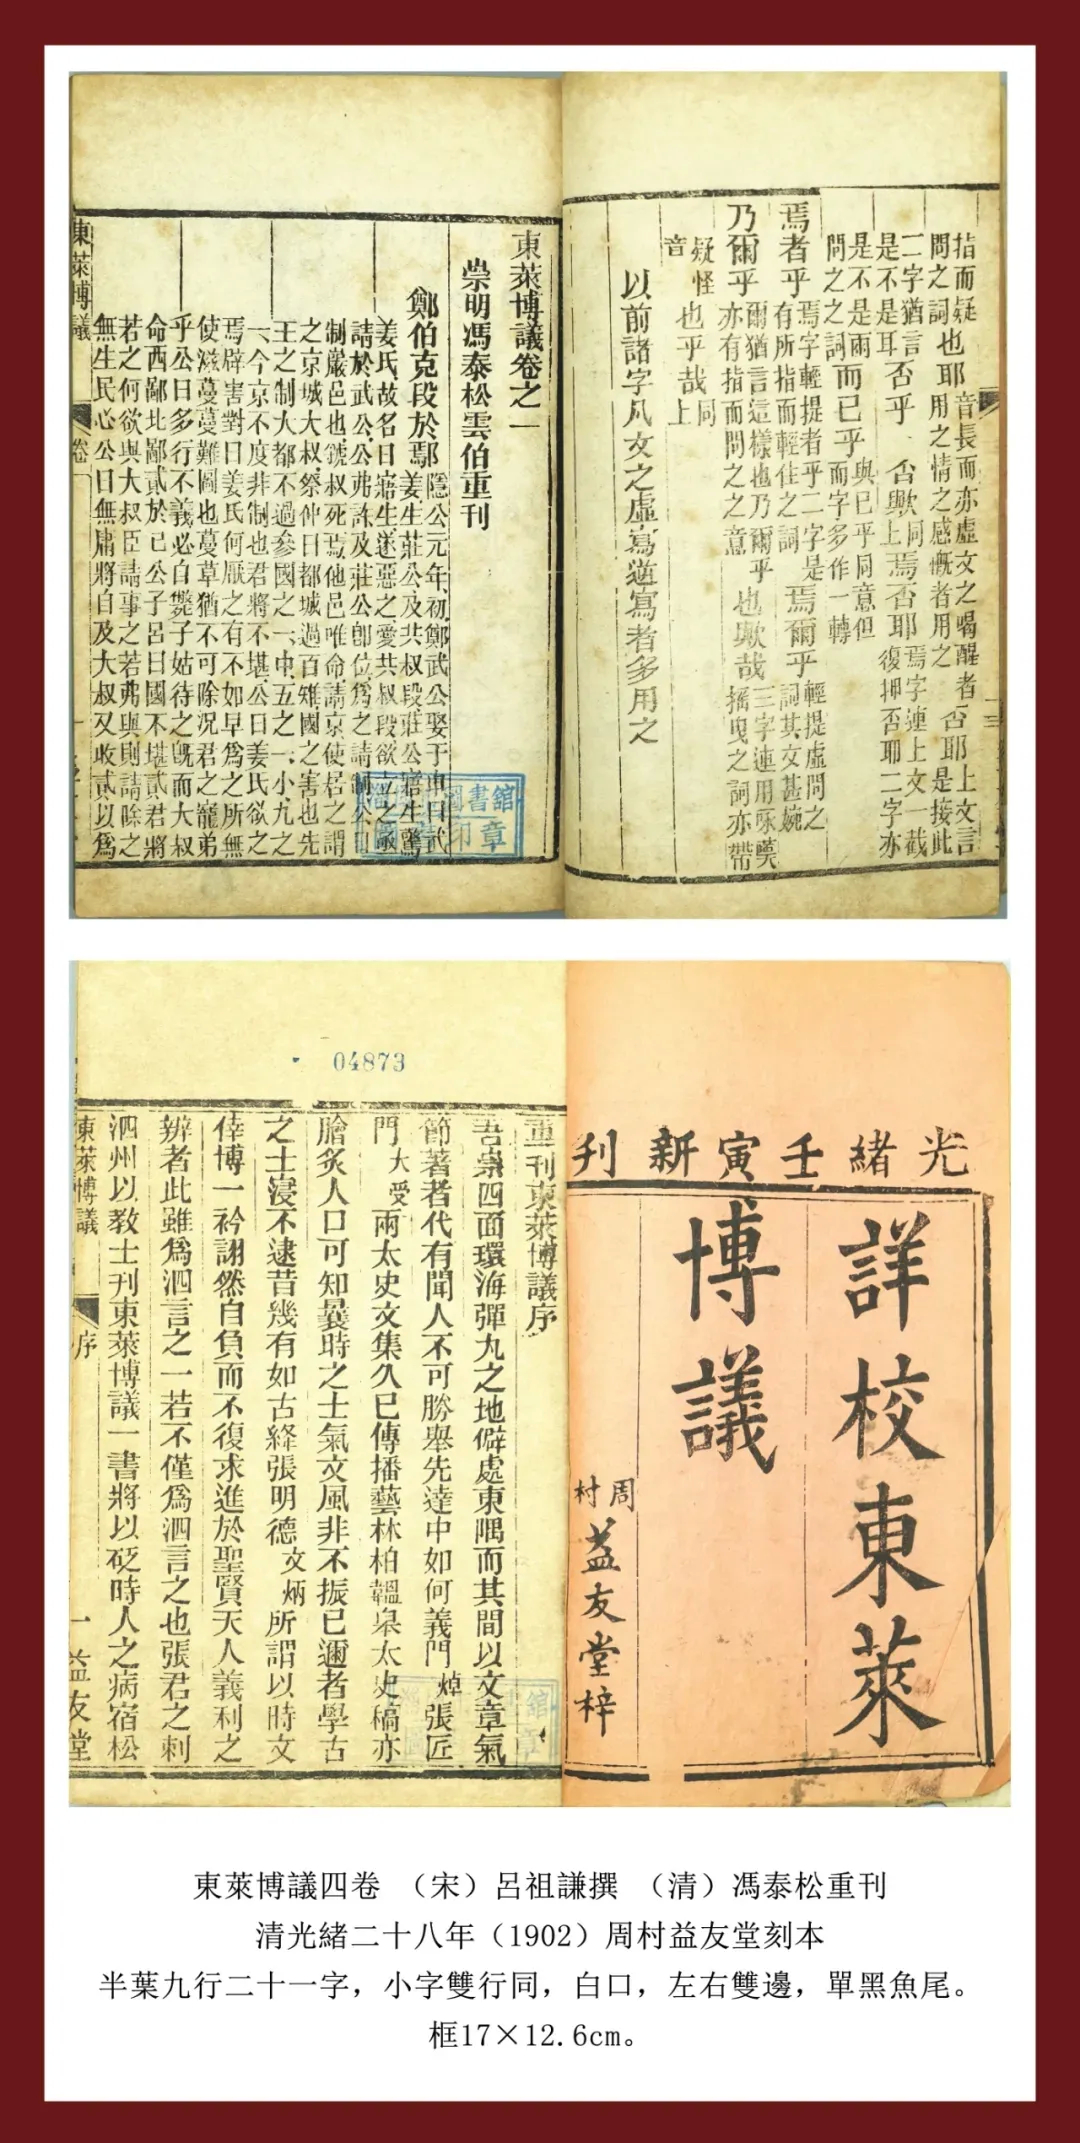 指而疑
問之詞也耶音長而亦虛文之喝醒者否耶上文言
用之情之感慨者用之是接此
二字猶言否乎否歟同焉否耶焉字連上文一截
是不是耳上復押否耶二字亦
是不是兩而已乎與已乎同意但
問之之詞而字多作一轉
焉者乎焉字輕提者乎二字是焉爾乎輕提虛問之
有所指而輕住之詞詞其文甚婉
乃爾乎爾猶言這樣也乃爾乎也歟哉三字連用咏嘆
亦有指而問之之意搖曳之詞亦帶
疑怪也乎哉同上
音
以前諸字凡文之虛寫遊寫者多用之
東萊博議卷之一
崇明馮泰松雲伯重刊
鄭伯克段於鄢隱公元年初鄭武公娶于申曰武
姜生莊公及共叔段莊公寤生驚
姜氏故名曰寤生遂惡之愛共叔段欲立之亟
請於武公公弗許及莊公卽位爲之請制公曰
制巖邑也虢叔死焉他邑唯命請京使居之謂
之京城大叔祭仲曰都城過百雉國之害也先
王之制大都不過參國之一中五之一小九之
一今京不度非制也君將不堪公曰姜氏欲之
焉辟害對曰姜氏何厭之有不如早爲之所無
使滋蔓蔓難圖也蔓草猶不可除況君之寵弟
乎公曰多行不義必自斃子姑待之旣而大叔
命西鄙北鄙貳於己公子呂曰國不堪貳君將
若之何欲與大叔臣請事之若弗與則請除之
無生民心公曰無庸將自及大叔又收貳以爲
東萊博議
卷一
圖書館
印章
光緒壬寅新刊
詳校東萊
博議
周村益友堂梓
04873
重刊東萊博議序
吾崇四面環海彈丸之地僻處東隅而其間以文章氣
節著者代有聞人不可勝舉先達中如何義門焯張匠
門大受兩太史文集久已傳播藝林柏韞皋太史稿亦
膾炙人口可知曩時之士氣文風非不振已邇者學古
之士寖不逮昔幾有如古絳張明德文炳所謂以時文
倖博一衿詡然自負而不復求進於聖賢天人義利之
辨者此雖爲泗言之一若不僅爲泗言之也張君之刺
泗州以敎士刊東萊博議一書將以砭時人之病宿松
東萊博議
序
一
益友堂
東萊博議四卷 （宋）呂祖謙撰 （清）馮泰松重刊
清光緒二十八年（1902）周村益友堂刻本
半葉九行二十一字，小字雙行同，白口，左右雙邊，單黑魚尾。
框17×12.6cm。